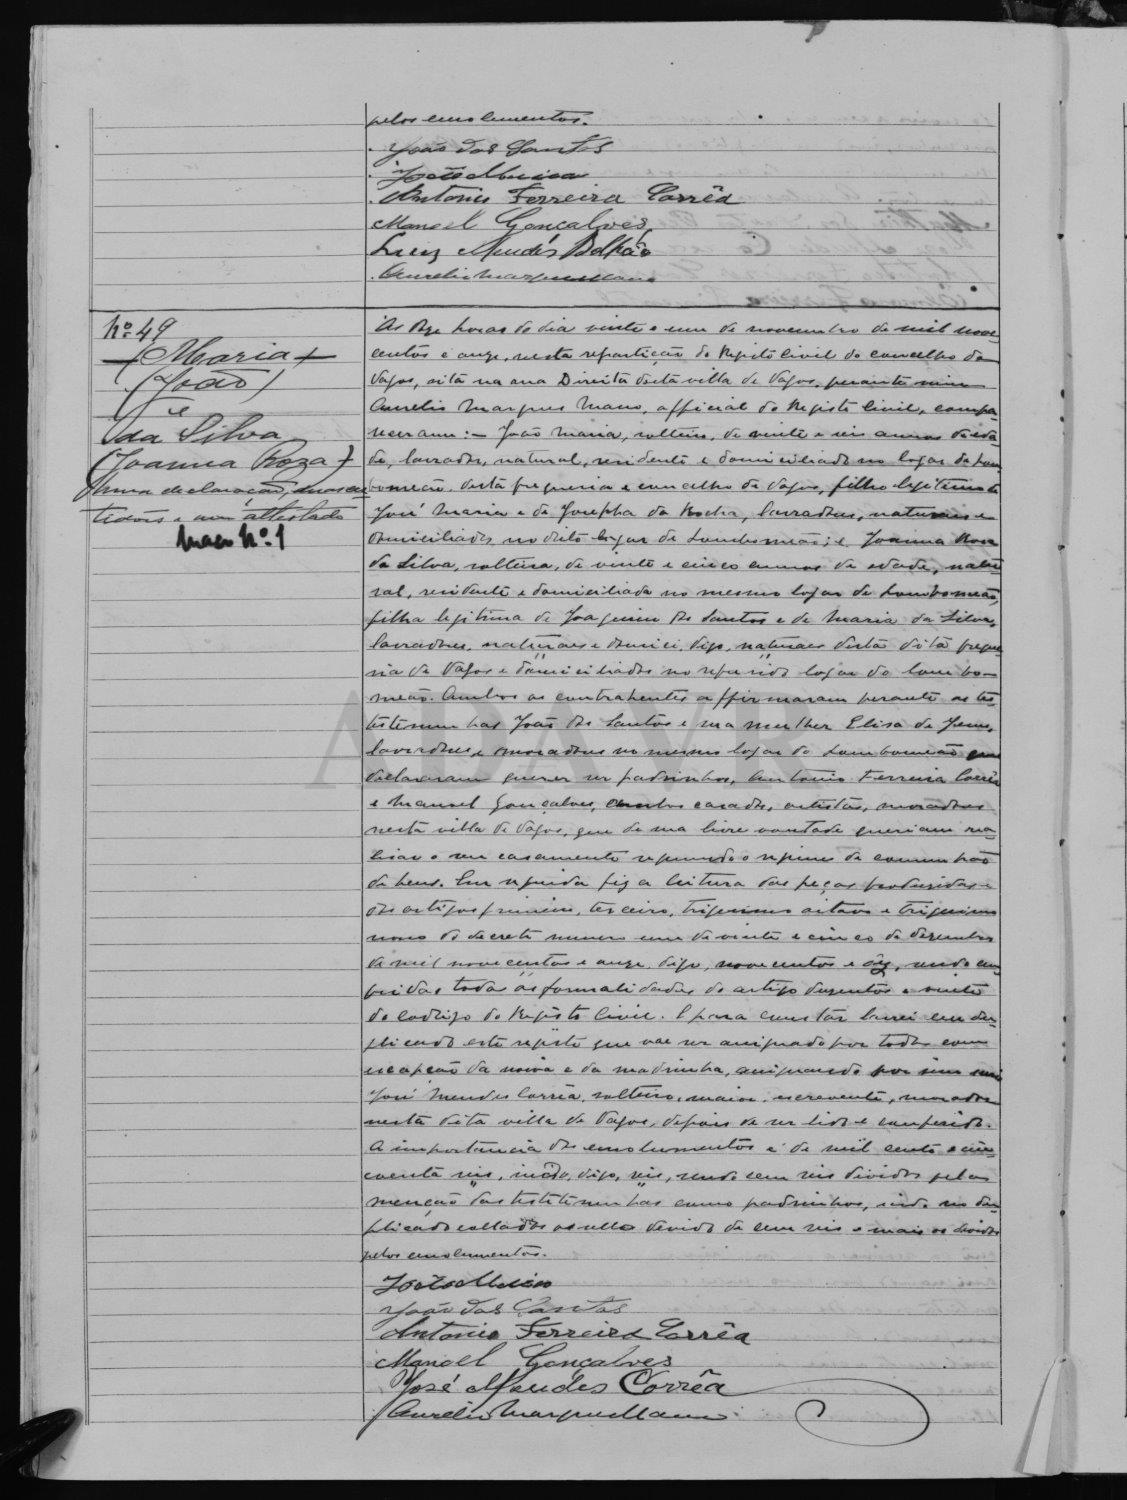 pelos emolumentos.
João dos Santos
João Maria
Antonio Ferreira Corrêa
Manoel Gonçalves
Luiz Mendes Bolhão
Aurelio Marques Mano
Nº 49
(Maria)
(João)
e
da Silva
(Joanna Roza)
Uma declaração, duas cer
tidões e um attestado
Maço Nº 1
Ás onze horas do dia vinte e um de novembro de mil nove-
centos e onze, nesta repartição do Registo Civil do concelho de
Vagos, sita na rua Direita desta villa de Vagos, perante mim
Aurelio Marques Mano, official do Registo Civil, compa-
receram: - João Maria, solteiro, de vinte e seis annos de eda-
de, lavrador, natural, residente e domiciliado no logar de Lom-
bomeão, desta freguesia e concelho de Vagos, filho legitimo de
José Maria e de Josepha da Rocha, lavradores, naturaes e
domiciliados no dito logar de Lombomeão; e Joanna Rosa
da Silva, solteira, de vinte e cinco annos de edade, natu-
ral, residente e domiciliada no mesmo logar de Lombomeão,
filha legitima de Joaquim dos Santos e de Maria da Silva,
lavradores, naturaes e domici, digo, naturaes desta dita fregue-
sia de Vagos e domiciliados no referido logar do Lombo-
meão. Ambos os contrahentes affirmaram perante as tes-
testemunhas João dos Santos e sua mulher Elisa de Jesus,
lavradores, e moradores no mesmo logar de Lombomeão que
declararam querer ser padrinhos, Antonio Ferreira Corrêa
e Manoel Gonçalves, ambos casados, artistas, moradores
nesta villa de Vagos, que de sua livre vontade queriam rea-
lisar o seu casamento segundo o regimen da communhão
de bens. Em seguida fiz a leitura das peças produzidas e
dos artigos primeiro, terceiro, trigesimo oitavo e trigesimo
nono do decreto numero um de vinte e cinco de dezembro
de mil novecentos e onze, digo, novecentos e dez, sendo cum-
pridas todas as formalidades do artigo duzentos e vinte
do Codigo do Registo Civil. E para constar lavrei em du-
plicado este registo que vae ser assignado por todos com
excepção da noiva e da madrinha, assignando por
José Mendes Corrêa, solteiro, maior, escrevente, morador
nesta dita villa de Vagos, depois de ser lido e conferido.
A importancia dos emolumentos é de mil cento e cin-
coenta reis, digo, reis, sendo cem reis devidos pela
menção das testemunhas como padrinhos, indo no du-
plicado collados o sello devido de cem reis e mais os devidos
pelos emolumentos.
João Maria
João dos Santos
Antonio Ferreira Corrêa
Manoel Gonçalves
José Mendes Corrêa
Aurelio Marques Mano
ADAVR